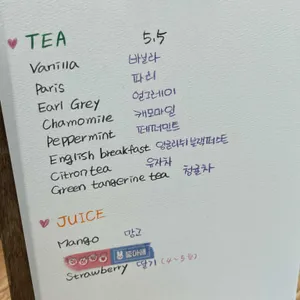 TEA 5.5
Vanilla 바닐라
Paris 파리
Earl Grey 얼그레이
Chamomile 캐모마일
Peppermint 페퍼민트
English breakfast 잉글리쉬 블랙퍼스트
Citron tea 유자차
Green tangerine tea 청귤차
JUICE
Mango 망고
Strawberry 딸기